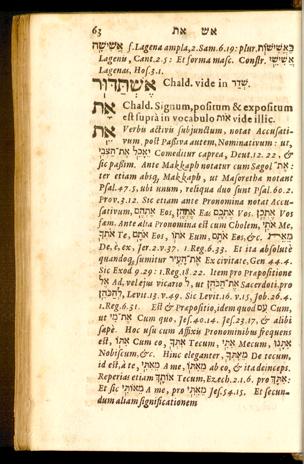 63 אש את
אֲשִׁישָׁה f. Lagena ampla, 2. Sam. 6. 19: plur.
Lagenis, Cant. 2. 5: Et forma masc. Constr. אֲשִׁישֵׁי
Lagenas, Hos. 3. 1.
אֶשְׁתַּדּוּר Chald. vide in שָׁדַר.
אָת Chald. Signum, positum & expositum
est suprà in vocabulo אוֹת vide illic.
אֵת Verbis activis subjunctum, notat Accusati-
vum, post Passiva autem, Nominativum: ut,
Comeditur caprea, Deut. 12. 22. &
sic passim. Ante Makkaph notatur cum Sagol אֶת־:
ter etiam absq; Makkaph, ut Masoretha notant
Psal. 47. 5, ubi unum, reliqua duo sunt Psal. 60. 2.
Prov. 3. 12. Sic etiam ante Pronomina notat Accu-
sativum, אֶתְהֶם Eos, אֶתְהֶן Eas, אֶתְכֶם Vos, אֶתְכֶן Vos
fæm. Ante alia Pronomina est cum Cholem, אֹתִי Me,
אֹתְךָ Te, אֹתוֹ Eum, אֹתָם Eos, &c.
De, è, ex, Jer. 2. v. 37. 1. Reg. 8. 33. Et ita absolutè
quandoq; sumitur Ex civitate, Gen. 44. 4.
Sic Exod. 9. 29: 1. Reg. 18. 22. Item pro Præpositione
אֶל Ad, vel ejus vicario לְ, ut Sacerdoti, pro
Levit. 13. v. 49. Sic Levit. 16. v. 15, Job. 26. 4.
1. Reg. 6. 31. Est & Præpositio, idem quod עִם Cum,
ut אֶת־מִי Cum quo, Jes. 40. 14. Jes. 23. 17, & alibi
sæpè. Hoc usu cum Affixis Pronominibus frequens
est, אִתּוֹ Cum eo, אִתְּךָ Tecum, אִתִּי Mecum, אִתָּנוּ
Nobiscum, &c. Hinc eleganter, מֵאִתְּךָ De tecum,
id est, à te, מֵאִתִּי A me, מֵאִתּוֹ ab eo, & ita deinceps.
Reperias etiam אוֹתָךְ Tecum, Ezech. 2. 1. 6. pro אִתְּךָ:
Et sic מֵאוֹתִי A me, pro מֵאִתִּי Jes. 54. 15. Et secun-
dum aliam significationem